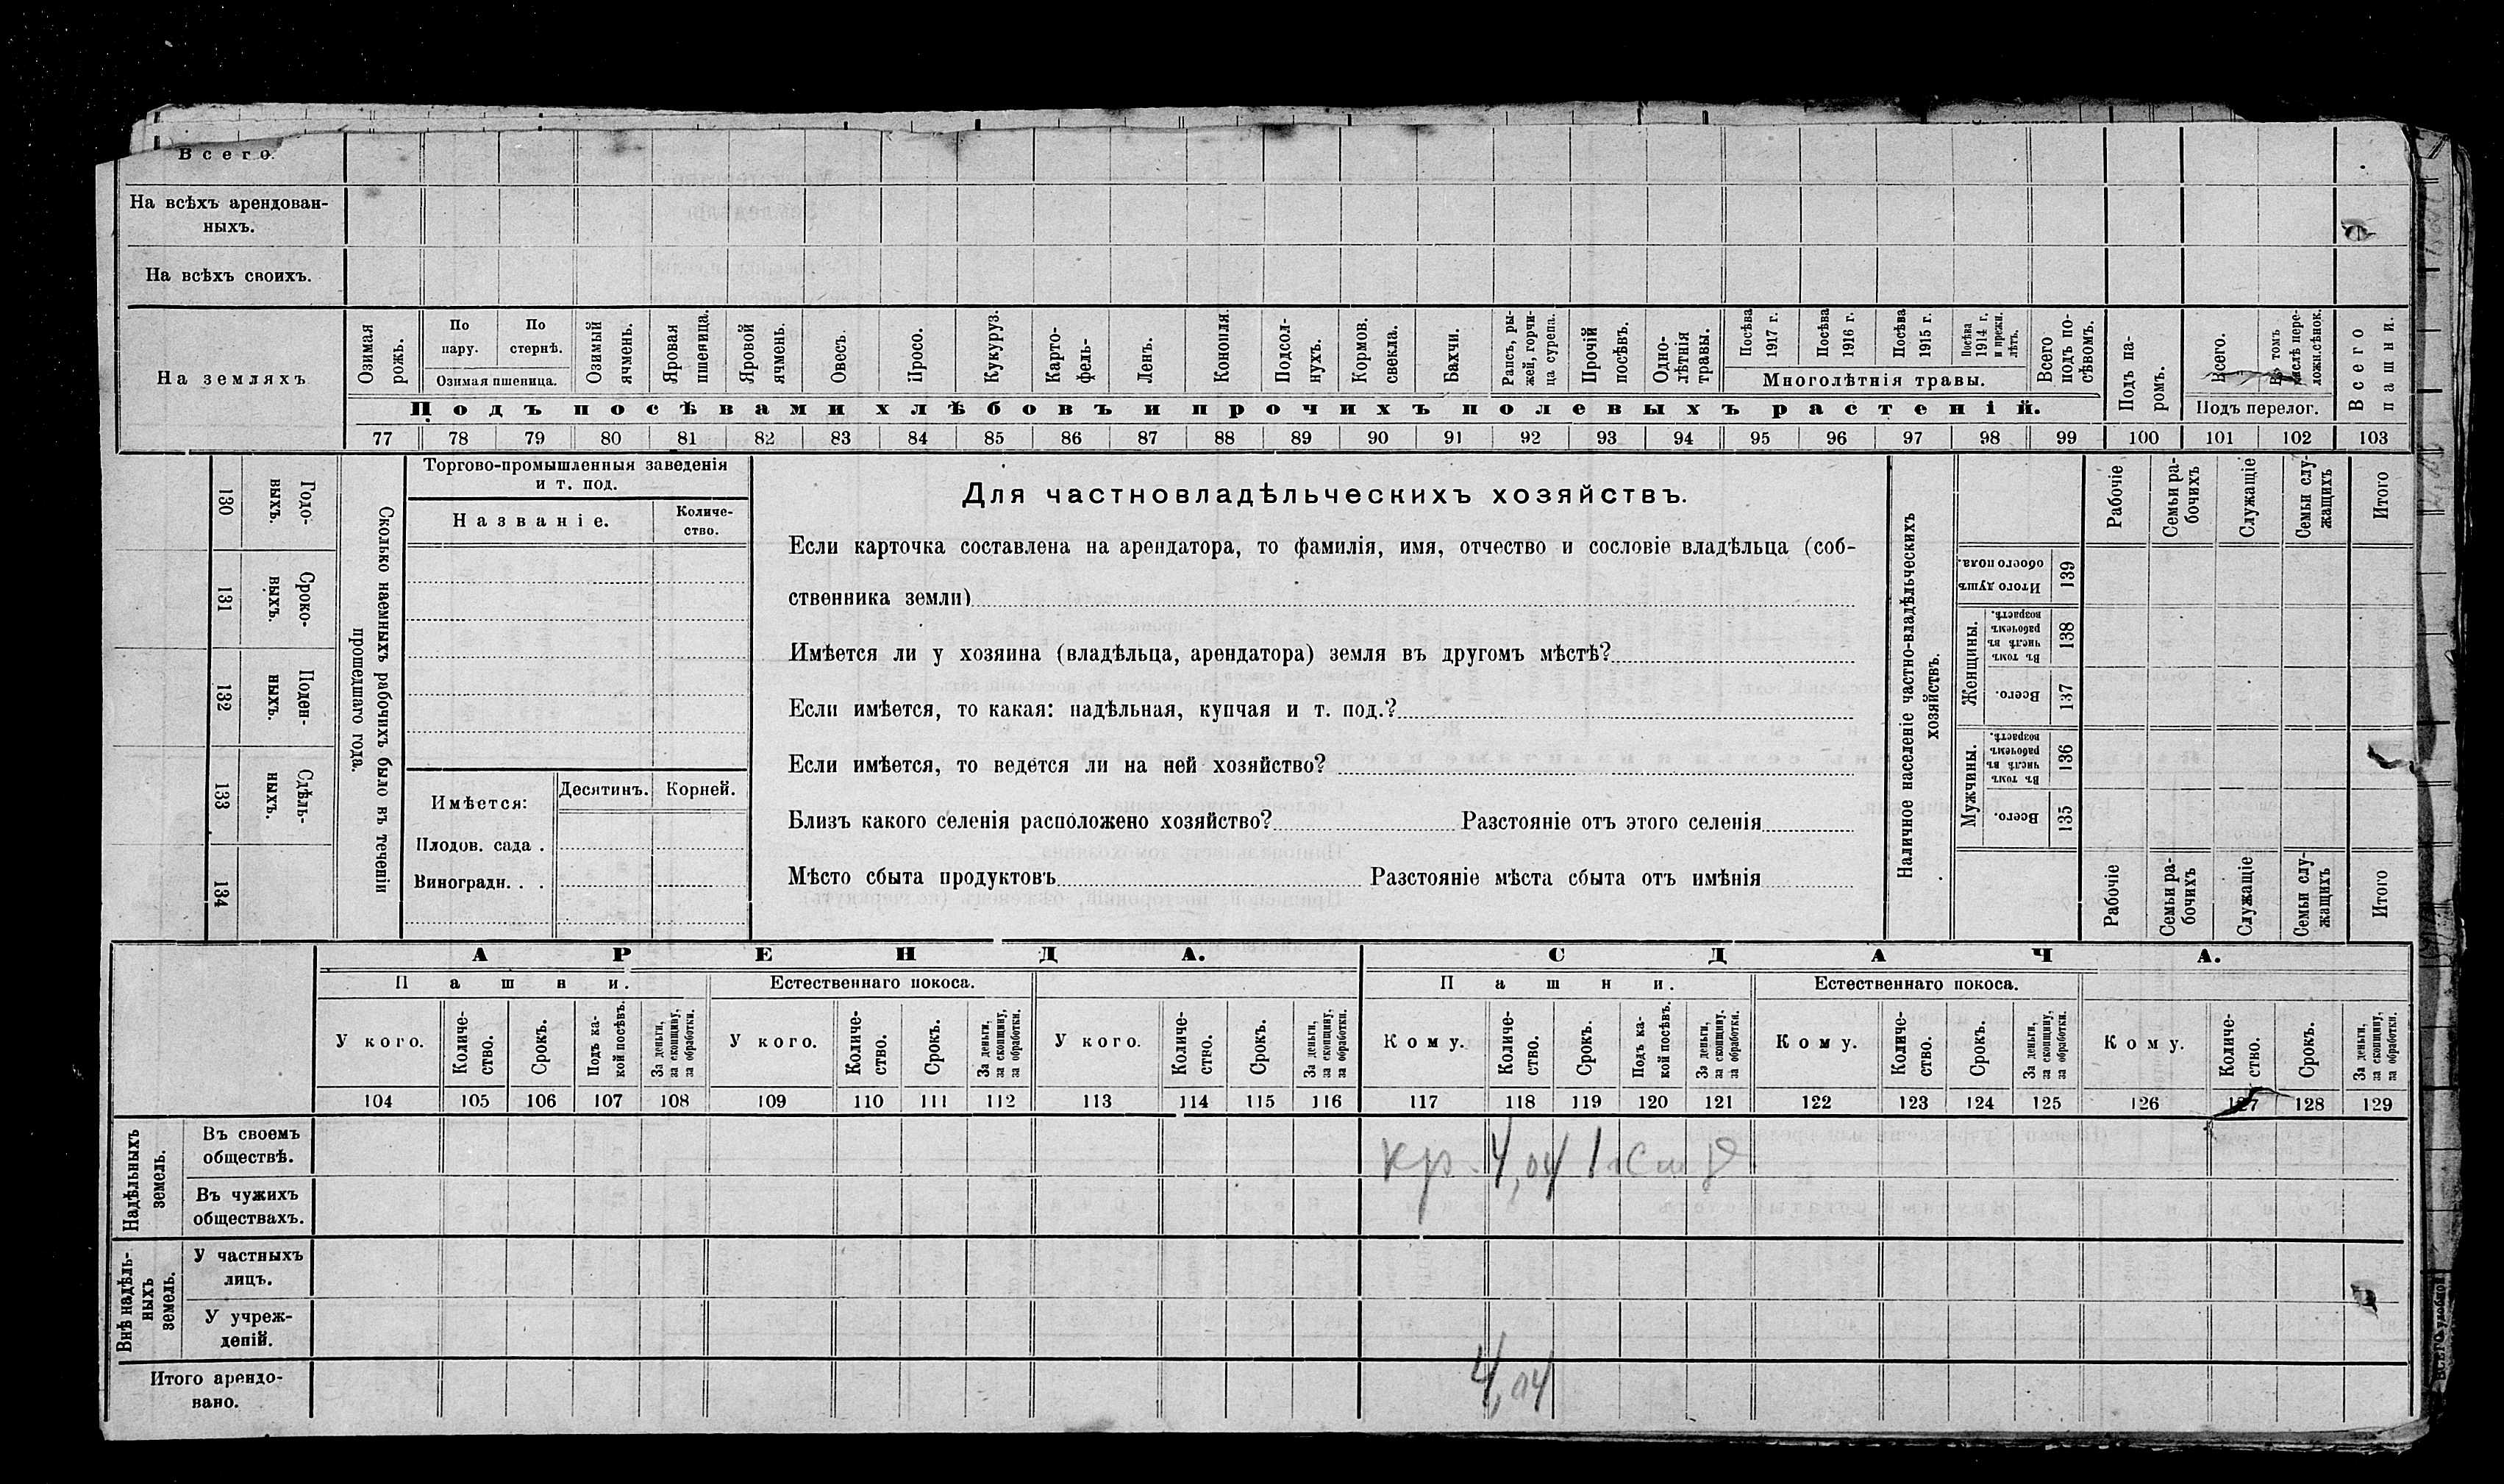 Всего.
На всѣхъ арендован-
ныхъ.
На всѣхъ своихъ.
На земляхъ
Озимая
рожь.
По
пару.
По
стернѣ.
Озимая пшеница.
Озимый
ячмень.
Яровая
пшеница.
Яровой
ячмень.
Овесъ.
Просо.
Кукуруз.
Карто-
фель-
Ленъ.
Конопля.
Подсол-
нухъ.
Кормов.
свекла.
Бахчи.
Рапсъ, ры-
жей, горчи-
ца сурепа.
Прочій
посѣвъ.
Одно-
лѣтнія
травы.
Посѣва
1917 г.
Посѣва
1916 г.
Посѣва
1915 г.
Посѣва
1914 г.
и прежн.
лѣтъ.
Многолѣтнія травы.
Всего
подъ по-
сѣвомъ.
Подъ па-
ромъ.
Всего.
Въ томъ
числѣ пере-
ложн.сѣнок.
Подъ перелог.
Всего
пашни.
Подъ посѣвами хлѣбовъ и прочихъ полевыхъ растеній.
77 78 79 80 81 82 83 84 85 86 87 88 89 90 91 92 93 94 95 96 97 98 99 100 101 102 103
130
Годо-
выхъ.
131
Сроко-
выхъ.
132
Поден-
ныхъ.
133
Сдѣль-
ныхъ.
134
Сколько наемныхъ рабочихъ было въ теченіи
прошедшаго года.
Торгово-промышленныя заведенія
и т. под.
Названіе.
Количе-
ство.
Имѣется:
Десятинъ.
Корней.
Плодов. сада .
Виноградн. . .
Для частновладѣльческихъ хозяйствъ.
Если карточка составлена на арендатора, то фамилія, имя, отчество и сословіе владѣльца (соб-
ственника земли)
Имѣется ли у хозяина (владѣльца, арендатора) земля въ другомъ мѣстѣ?
Если имѣется, то какая: надѣльная, купчая и т. под.?
Если имѣется, то ведется ли на ней хозяйство?
Близъ какого селенія расположено хозяйство? Разстояніе отъ этого селенія
Мѣсто сбыта продуктовъ Разстояніе мѣста сбыта отъ имѣнія
Наличное населеніе частно-владѣльческихъ
хозяйствъ.
Рабочіе
Семьи ра-
бочихъ
Служащіе
Семьи слу-
жащихъ
Итого
Итого душъ
обоего пола.
139
Женщины.
Въ томъ
числѣ въ
рабочемъ
возрастѣ.
138
Всего.
137
Мужчины.
Въ томъ
числѣ въ
рабочемъ
возрастѣ.
136
Всего.
135
Рабочіе
Семьи ра-
бочихъ
Служащіе
Семьи слу-
жащихъ
Итого
АРЕНДА.
СДАЧА.
Пашни.
Естественнаго покоса.
Пашни.
Естественнаго покоса.
У кого.
Количе-
ство.
Срокъ.
Подъ ка-
кой посѣвъ.
За деньги,
за скопщину,
за обработки.
У кого.
Количе-
ство.
Срокъ.
За деньги,
за скопщину,
за обработки.
У кого.
Количе-
ство.
Срокъ.
За деньги,
за скопщину,
за обработки.
Кому.
Количе-
ство.
Срокъ.
Подъ ка-
кой посѣвъ.
За деньги,
за скопщину.
за обработки.
Кому.
Количе-
ство.
Срокъ.
За деньги,
за скопщину,
за обработки.
Кому.
Количе-
ство.
Срокъ.
За деньги,
за скопщину,
за обработки.
104 105 106 107 108 109 110 111 112 113 114 115 116 117 118 119 120 121 122 123 124 125 126 127 128 129
Надѣльныхъ
земель.
Въ своемъ
обществѣ.
кр. 4,04 1
Въ чужихъ
обществахъ.
Внѣ надѣль-
ныхъ
земель.
У частныхъ
лицъ.
У учреж-
деній.
Итого арендо-
вано.
4,04